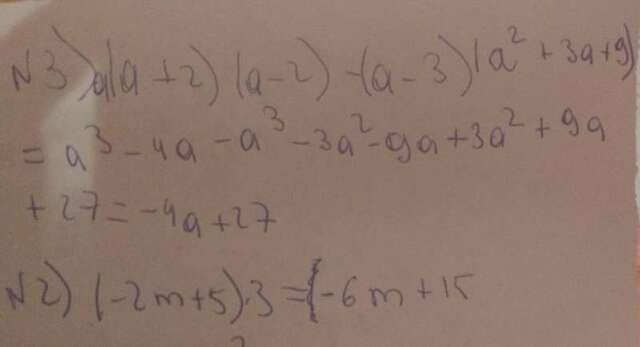 N3) a(a+2)(a-2)-(a-3)(a²+3a+9)
= a³-4a-a³-3a²-9a+3a²+9a
+27=-4a+27
N2) (-2m+5)·3=(-6m+15